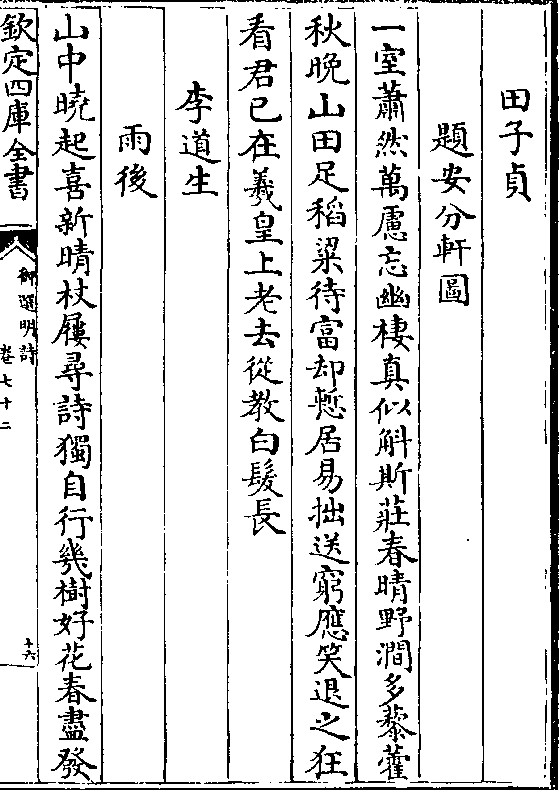 田子貞
題安分軒圖
一室蕭然萬慮忘幽棲真似斛斯莊春晴野澗多藜藿
秋晚山田足稻粱待富却慙居易拙送窮應笑退之狂
看君已在羲皇上老去從教白髮長
李道生
雨後
山中曉起喜新晴杖屨尋詩獨自行幾樹好花春盡發
欽定四庫全書
御選明詩
卷七十二
十六